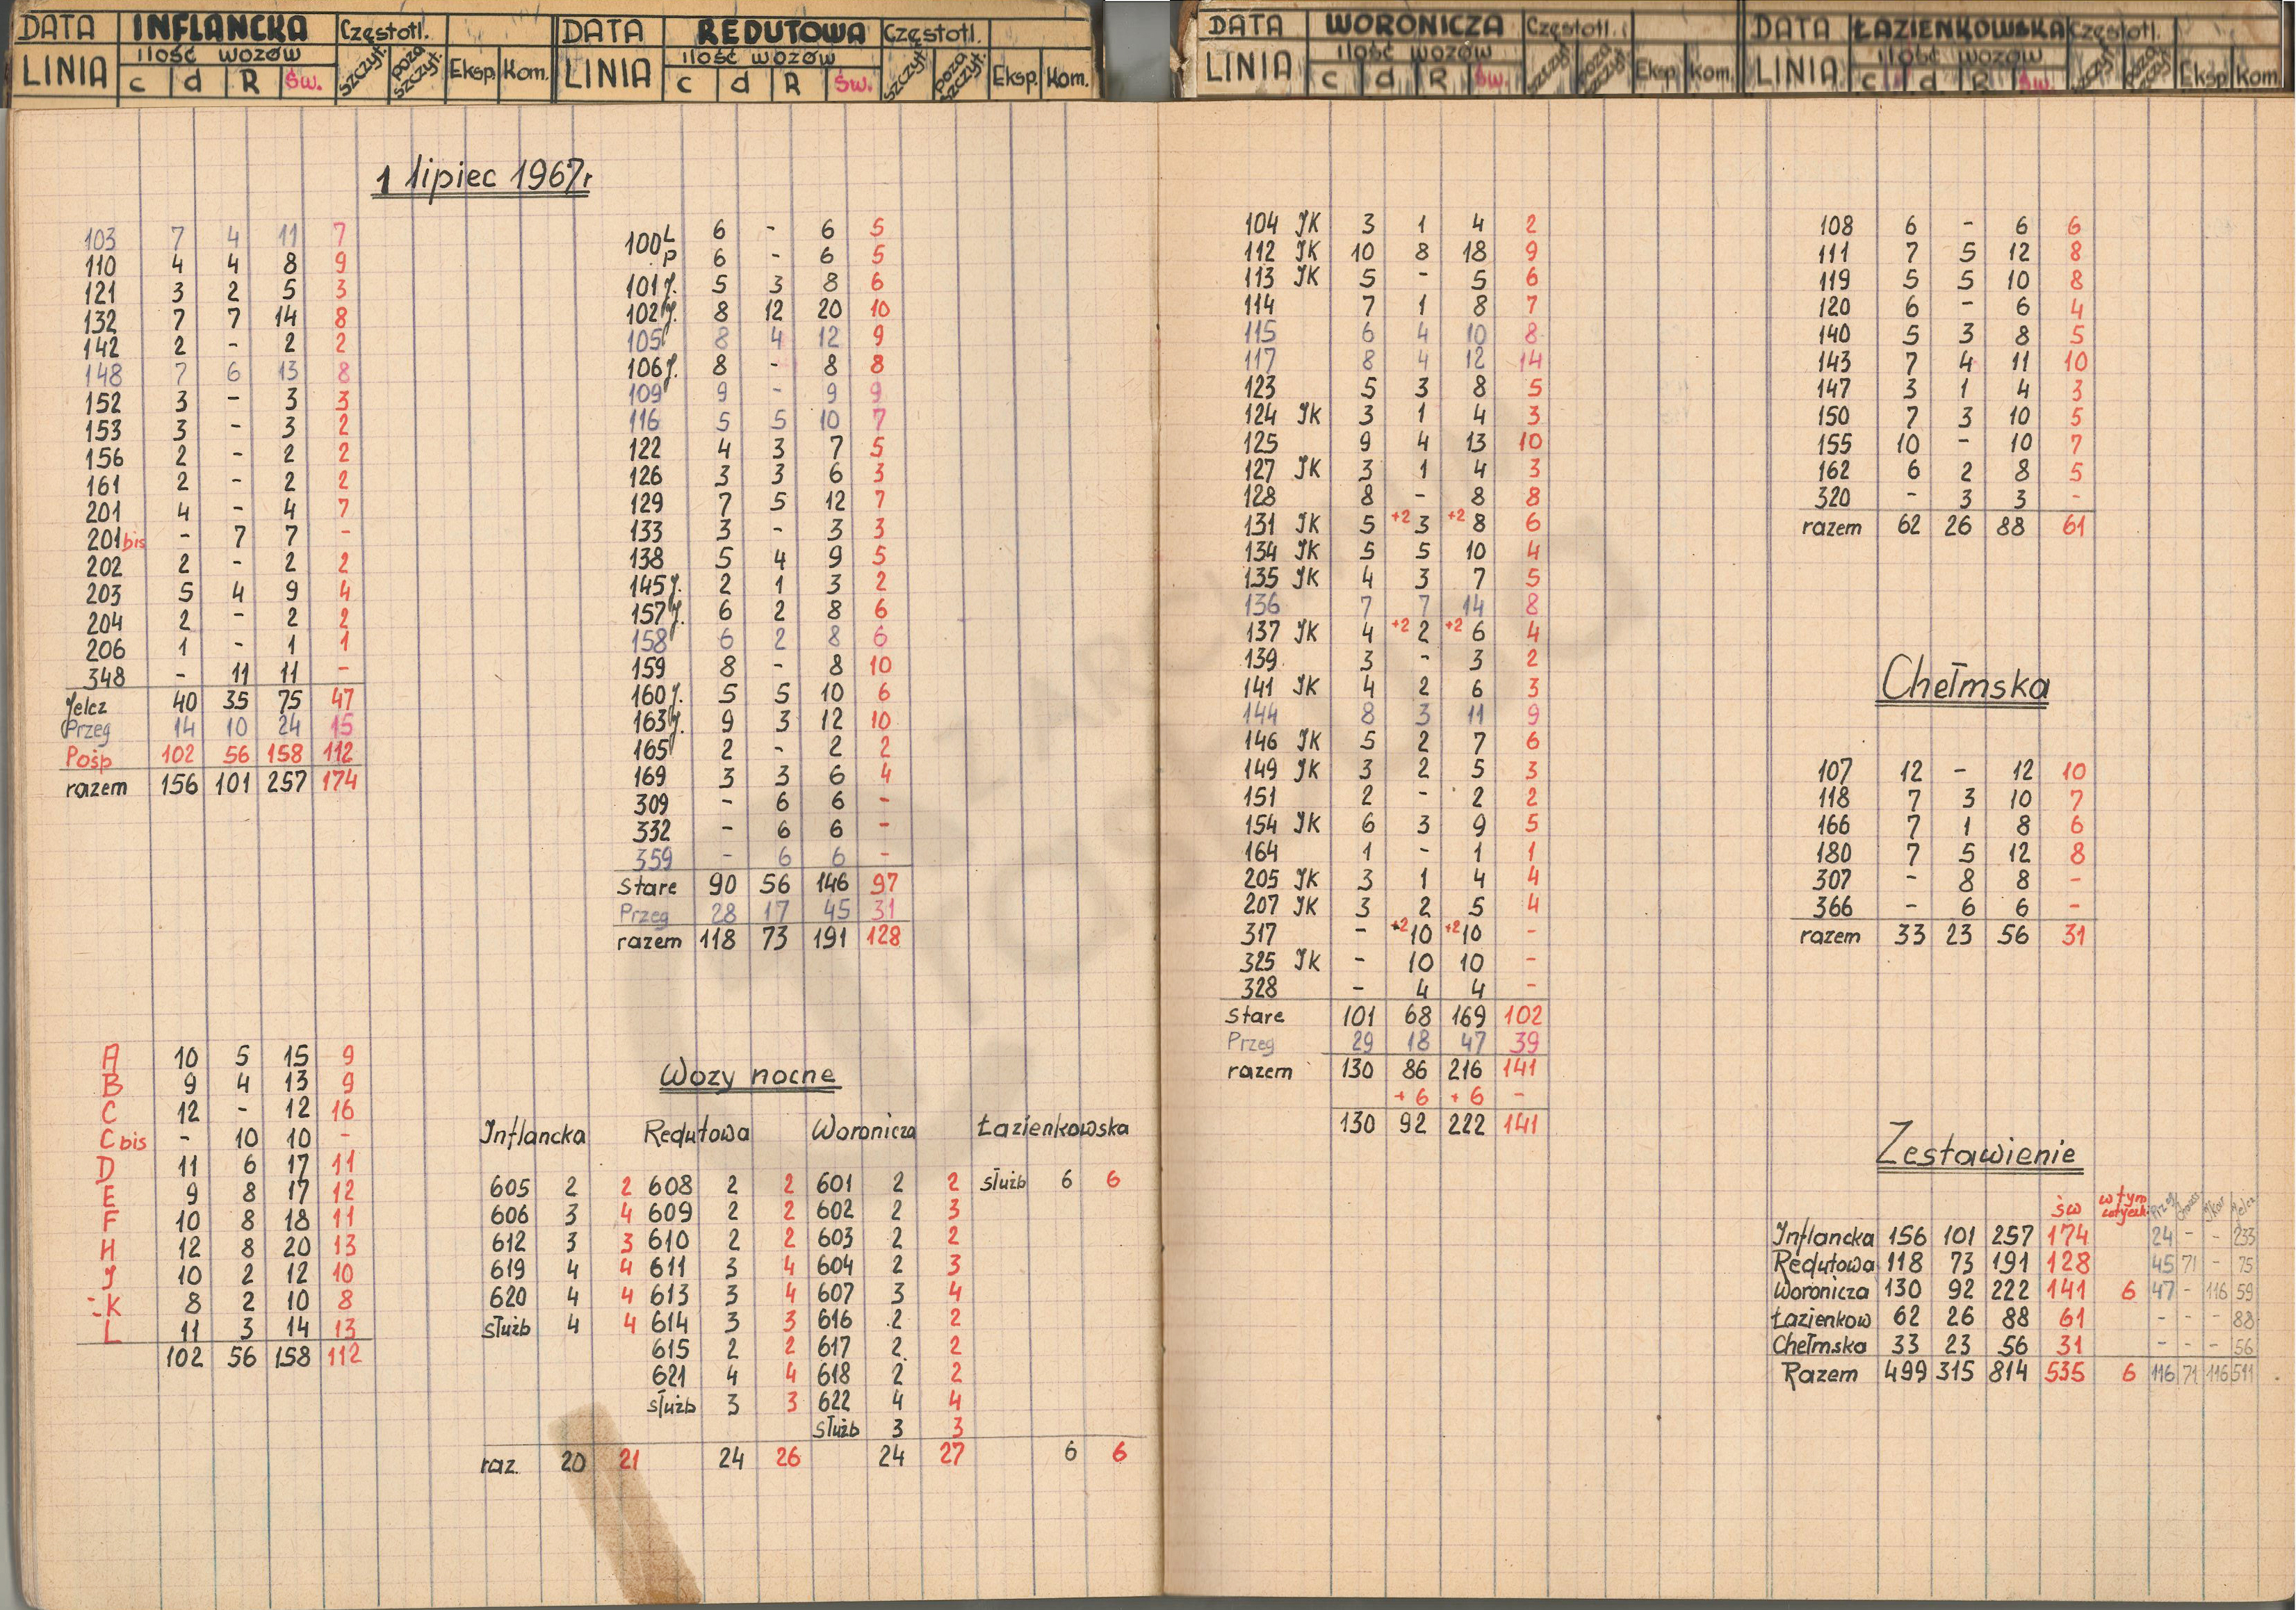 DATA INFLANCKA Częstotl.
LINIA ilość wozów szczyt. poza szczyt. Eksp. Kom.
c d R Św.
DATA REDUTOWA Częstotl.
LINIA ilość wozów szczyt. poza szczyt. Eksp. Kom.
c d R Św.
DATA WORONICZA Częstotl.
LINIA ilość wozów szczyt. poza szczyt. Eksp. Kom.
c d R Św.
DATA ŁAZIENKOWSKA Częstotl.
LINIA ilość wozów szczyt. poza szczyt. Eksp. Kom.
c d R Św.
1 lipiec 1967r
103 7 4 11 7
110 4 4 8 9
121 3 2 5 3
132 7 7 14 8
142 2 - 2 2
148 7 6 13 8
152 3 - 3 3
153 3 - 3 2
156 2 - 2 2
161 2 - 2 2
201 4 - 4 7
201bis - 7 7 -
202 2 - 2 2
203 5 4 9 4
204 2 - 2 2
206 1 - 1 1
348 - 11 11 -
Jelcz 40 35 75 47
Przeg 14 10 24 15
Pośp 102 56 158 112
razem 156 101 257 174
A 10 5 15 9
B 9 4 13 9
C 12 - 12 16
C bis - 10 10 -
D 11 6 17 11
E 9 8 17 12
F 10 8 18 11
H 12 8 20 13
J 10 2 12 10
K 8 2 10 8
L 11 3 14 13
102 56 158 112
100 L 6 - 6 5
P 6 - 6 5
101 J. 5 3 8 6
102 J. 8 12 20 10
105 8 4 12 9
106 J. 8 - 8 8
109 9 - 9 9
116 5 5 10 7
122 4 3 7 5
126 3 3 6 3
129 7 5 12 7
133 3 - 3 3
138 5 4 9 5
145 J. 2 1 3 2
157 J. 6 2 8 6
158 6 2 8 6
159 8 - 8 10
160 J. 5 5 10 6
163 J. 9 3 12 10
165 2 - 2 2
169 3 3 6 4
309 - 6 6 -
332 - 6 6 -
359 - 6 6 -
Stare 90 56 146 97
Przeg 28 17 45 31
razem 118 73 191 128
Wozy nocne
Inflancka Redutowa Woronicza Łazienkowska
605 2 2 608 2 2 601 2 2 służb 6 6
606 3 4 609 2 2 602 2 3
612 3 3 610 2 2 603 2 2
619 4 4 611 3 4 604 2 3
620 4 4 613 3 4 607 3 4
służb 4 4 614 3 3 616 2 2
615 2 2 617 2 2
621 4 4 618 2 2
służb 3 3 622 4 4
służb 3 3
raz. 20 21 24 26 24 27 6 6
104 JK 3 1 4 2
112 JK 10 8 18 9
113 JK 5 - 5 6
114 7 1 8 7
115 6 4 10 8
117 8 4 12 14
123 5 3 8 5
124 JK 3 1 4 3
125 9 4 13 10
127 JK 3 1 4 3
128 8 - 8 8
131 JK 5 +2 3 +2 8 6
134 JK 5 5 10 4
135 JK 4 3 7 5
136 7 7 14 8
137 JK 4 +2 2 +2 6 4
139 3 - 3 2
141 JK 4 2 6 3
144 8 3 11 9
146 JK 5 2 7 6
149 JK 3 2 5 3
151 2 - 2 2
154 JK 6 3 9 5
164 1 - 1 1
205 JK 3 1 4 4
207 JK 3 2 5 4
317 - +2 10 +2 10 -
325 JK - 10 10 -
328 - 4 4 -
Stare 101 68 169 102
Przeg 29 18 47 39
razem 130 86 216 141
+ 6 + 6 -
130 92 222 141
108 6 - 6 6
111 7 5 12 8
119 5 5 10 8
120 6 - 6 4
140 5 3 8 5
143 7 4 11 10
147 3 1 4 3
150 7 3 10 5
155 10 - 10 7
162 6 2 8 5
320 - 3 3 -
razem 62 26 88 61
Chełmska
107 12 - 12 10
118 7 3 10 7
166 7 1 8 6
180 7 5 12 8
307 - 8 8 -
366 - 6 6 -
razem 33 23 56 31
Zestawienie
św w tym Przeg Jkar Jelcz
Inflancka 156 101 257 174 24 - - 233
Redutowa 118 73 191 128 45 71 - 75
Woronicza 130 92 222 141 6 47 - 116 59
Łazienkow 62 26 88 61 - - - 88
Chełmska 33 23 56 31 - - - 56
Razem 499 315 814 535 6 116 71 116 511